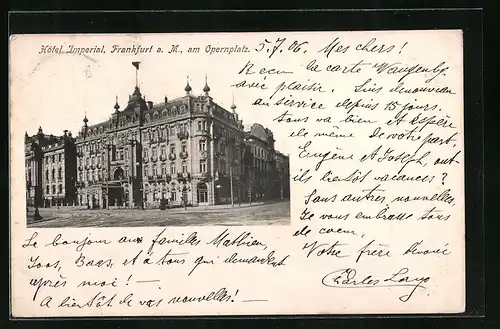 Hôtel Imperial, Frankfurt a. M., am Opernplatz.
5.7.06. Mes chers!
Reçu la carte Wangenbg.
avec plaisir. Suis de nouveau
au service depuis 15 jours.
tous va bien et espère
de même de votre part.
Eugène et Joseph, ont
ils bientôt vacances?
Sans autres nouvelles,
Je vous embrasse tous
de coeur,
Votre frère dévoué
Charles
Le bonjour aux familles Mathieu,
Joos, Baas, et à tous qui demandent
après moi! —
A bientôt de vos nouvelles! —